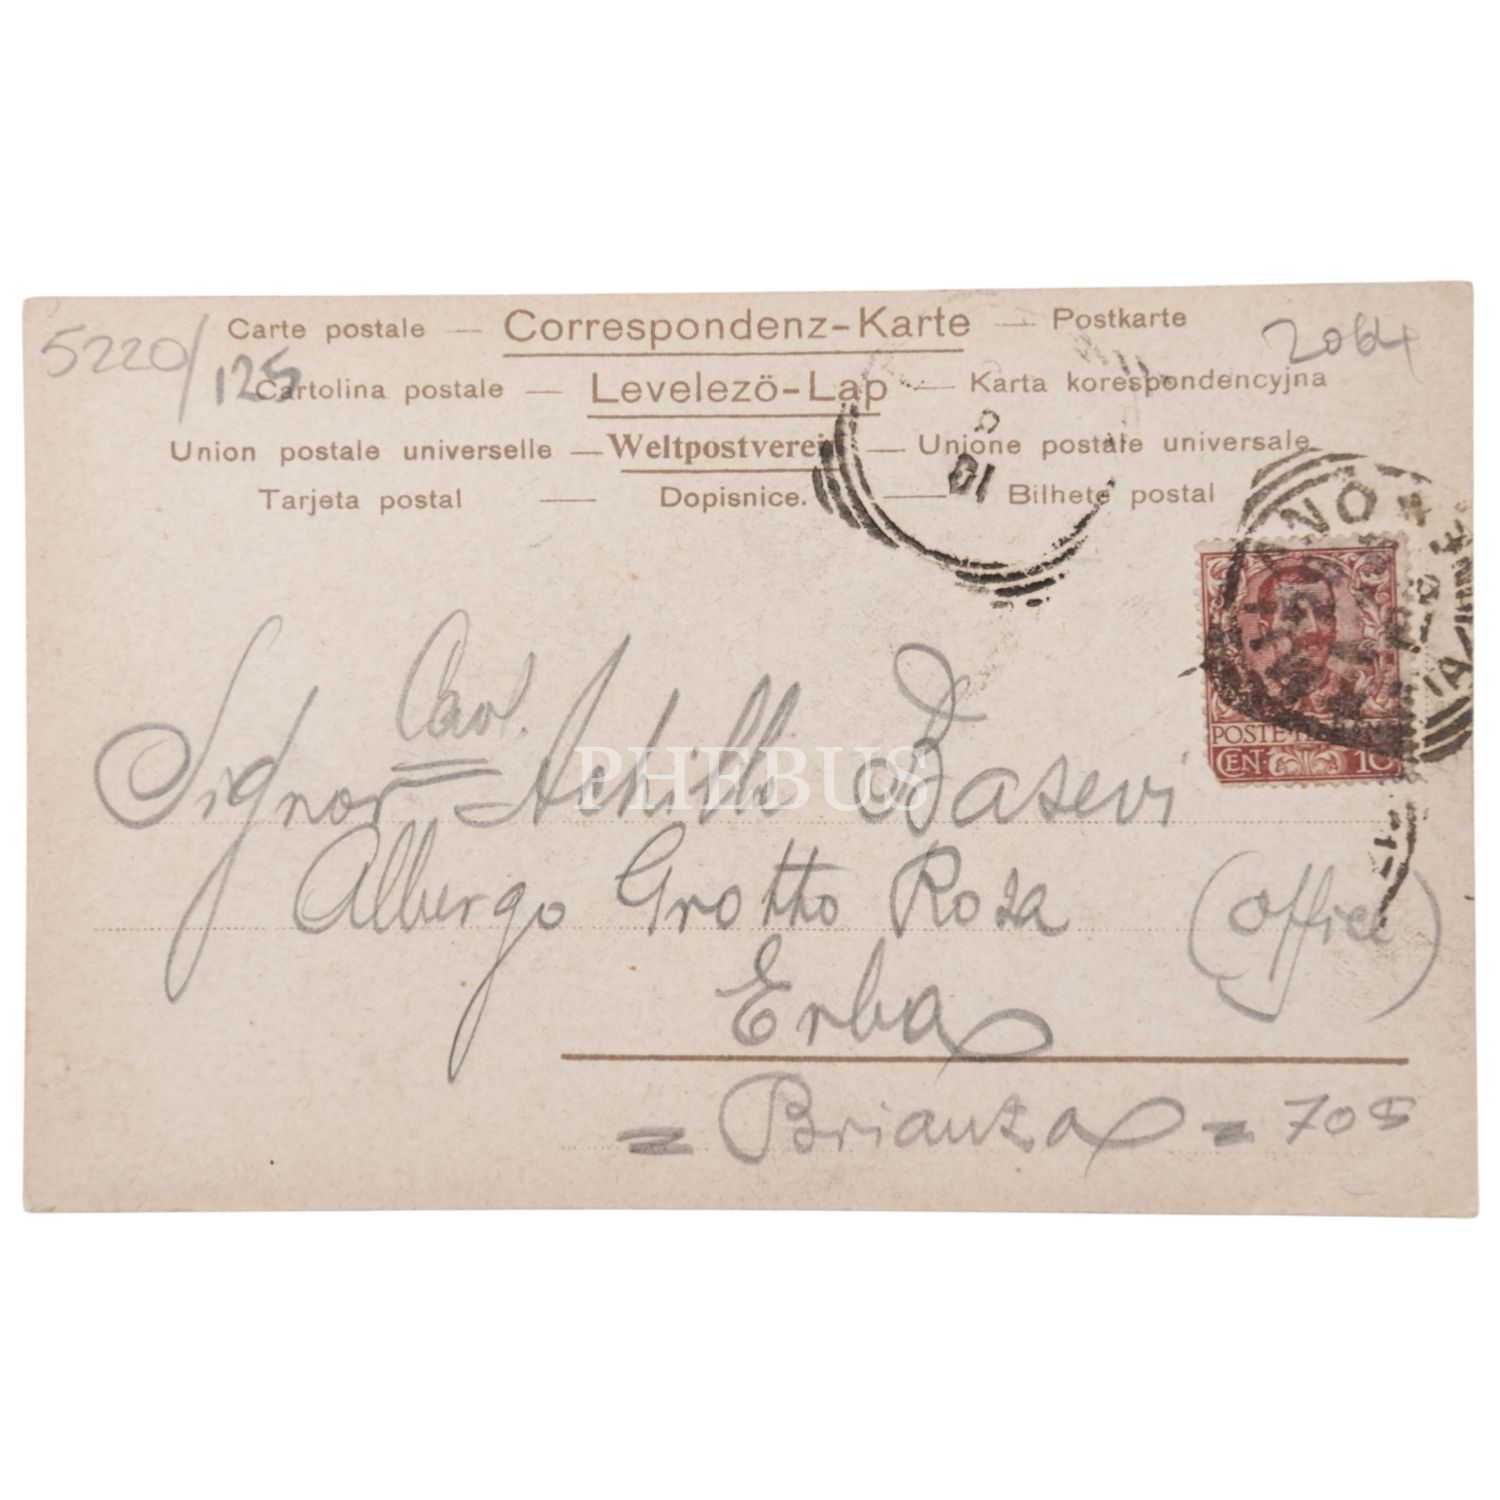 5220/125
2064
Carte postale — Correspondenz-Karte — Postkarte
Cartolina postale — Levelező-Lap — Karta korespondencyjna
Union postale universelle — Weltpostverein — Unione postale universale
Tarjeta postal — Dopisnice. — Bilhete postal
MILANO
POSTE
CEN. 10
Cav.
Signor Achille Basevi
PHEBUS
Albergo Grotto Rosa
Erba
= Brianza = 705